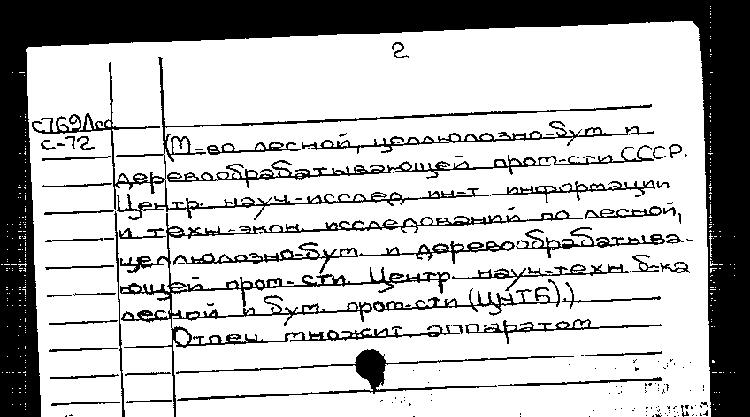 2
С769Лес
С-72
(М-во лесной, целлюлозно-бум. и
деревообрабатывающей пром-сти СССР.
Центр. науч.-исслед. ин-т информации
и техн.-экон. исследований по лесной,
целлюлозно-бум. и деревообрабатыва-
ющей пром-сти. Центр. науч.-техн. б-ка
лесной и бум. пром-сти (ЦНТБ).)
Отпеч. множит. аппаратом